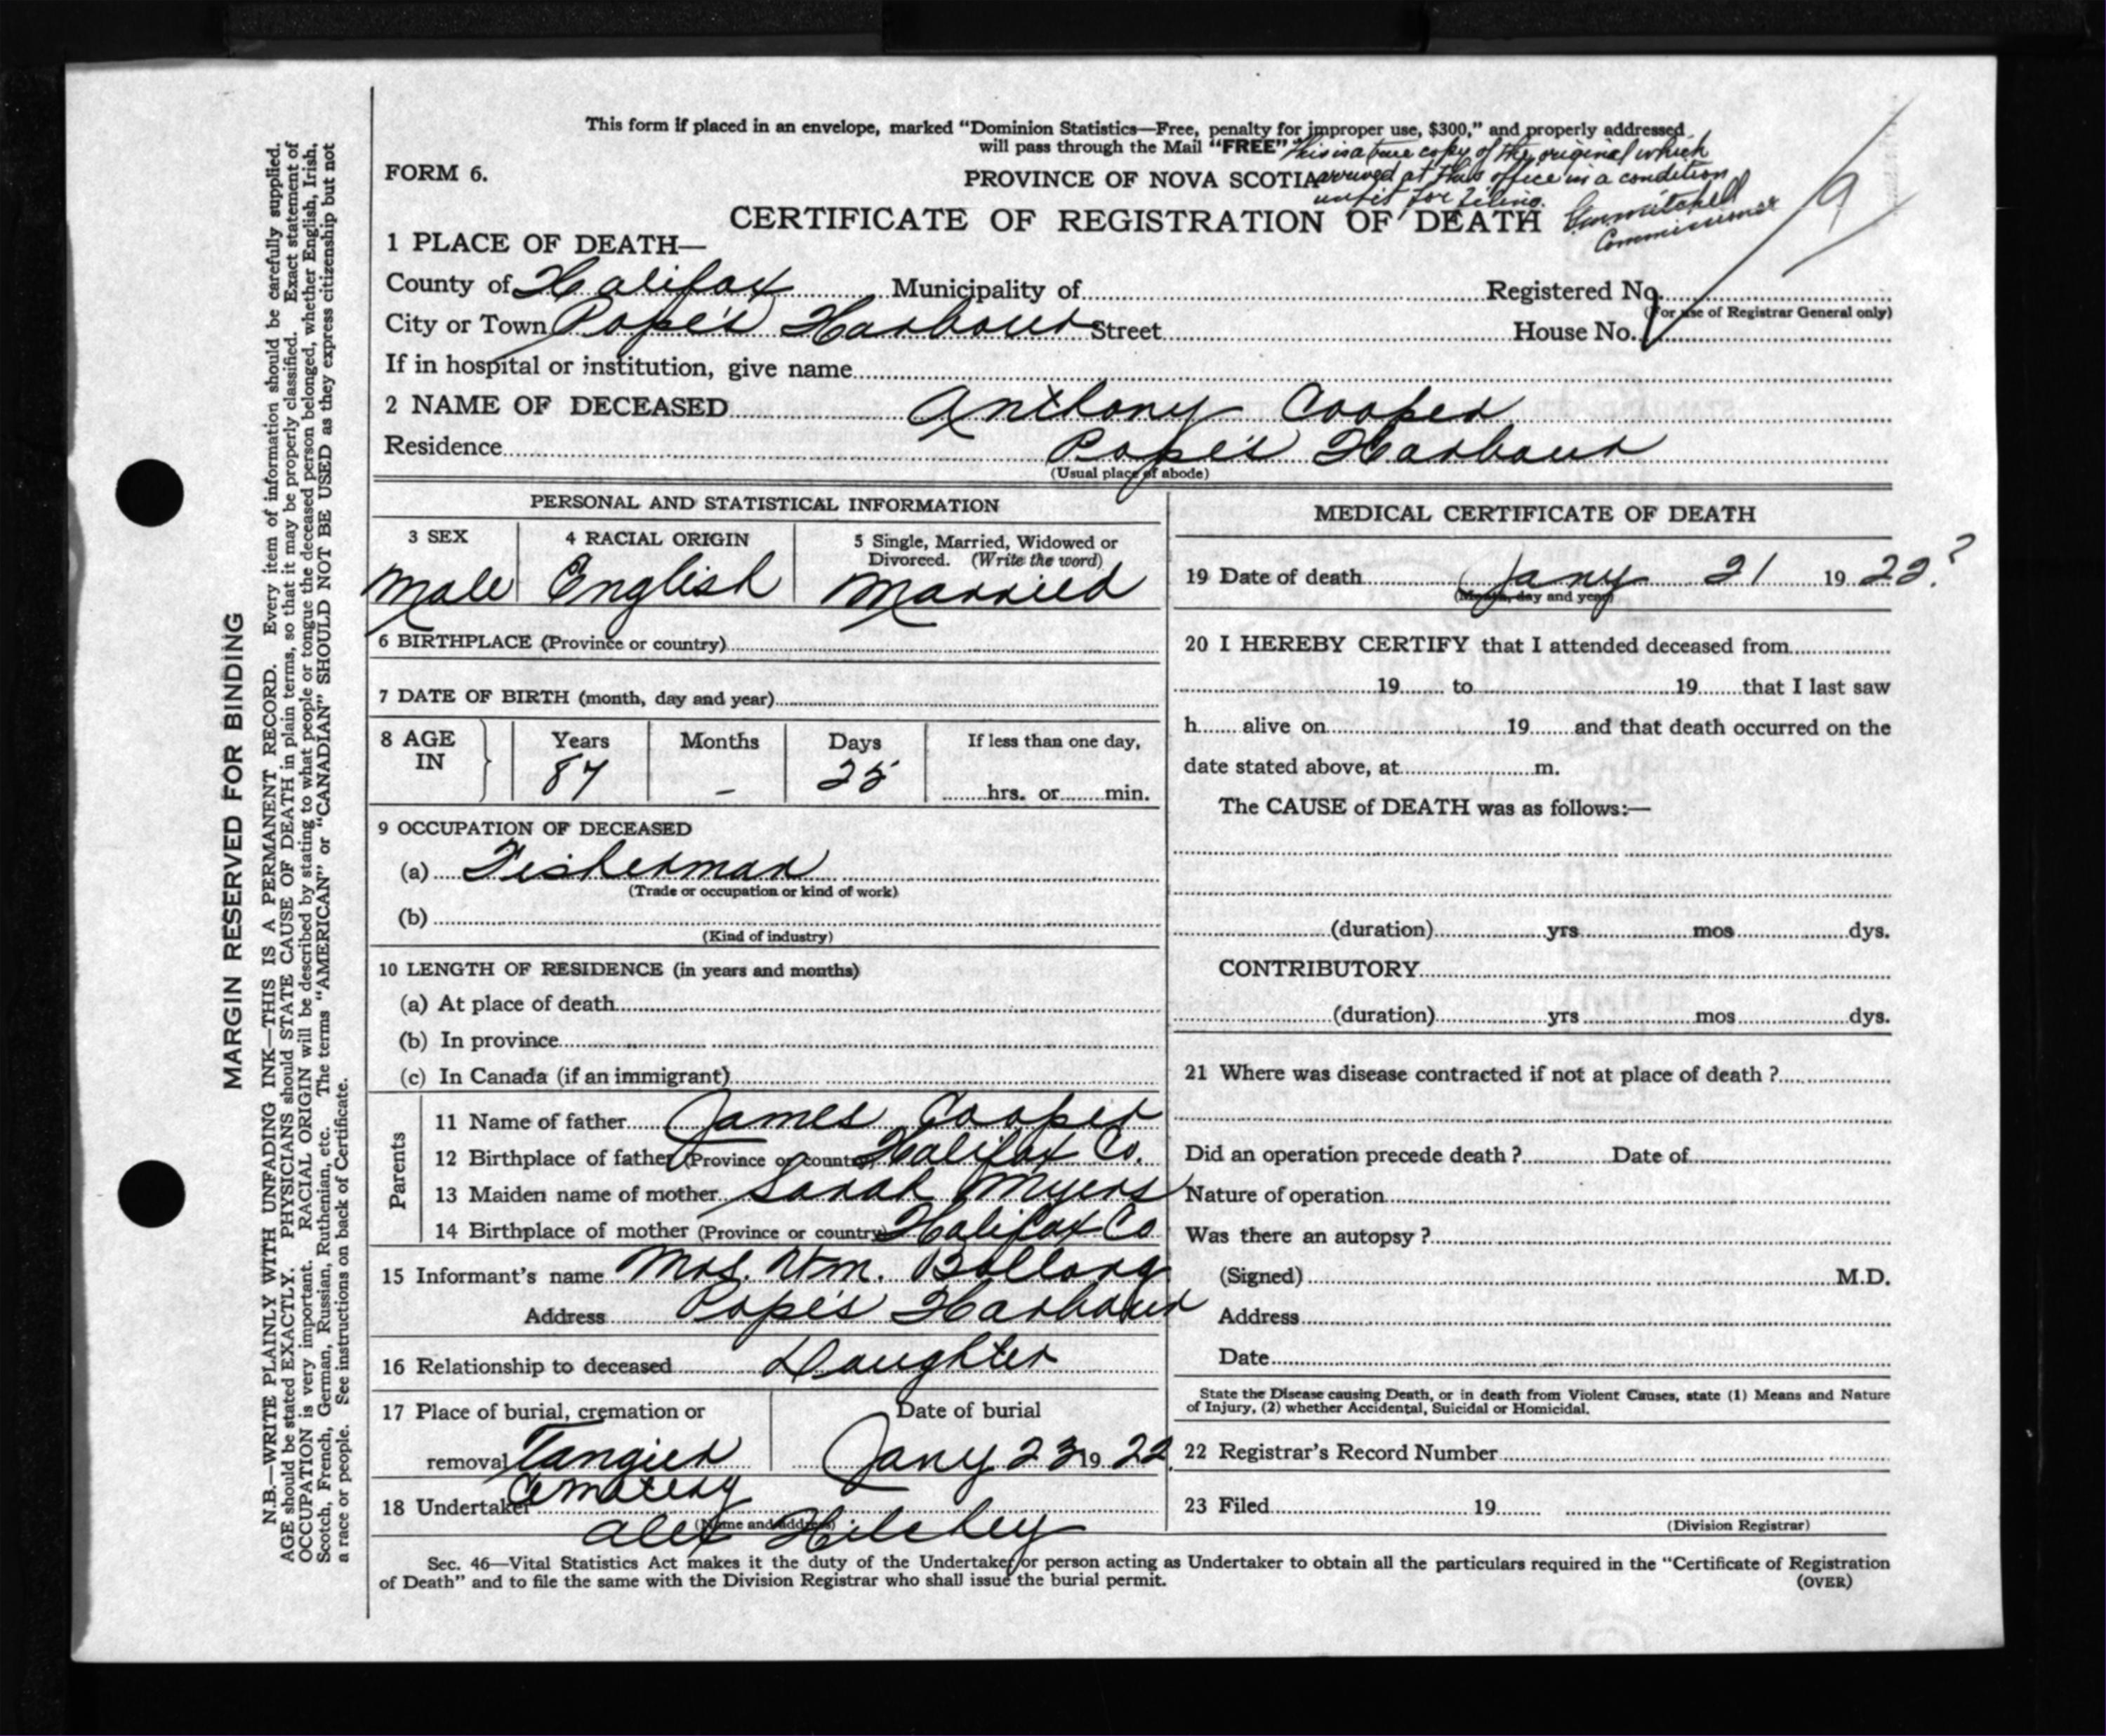 This form if placed in an envelope, marked "Dominion Statistics—Free, penalty for improper use, $300," and properly addressed
will pass through the Mail "FREE"
This is a true copy of the original which
arrived at this office in a condition
unfit for filing.
Mitchell
Commissioner
9
FORM 6.
PROVINCE OF NOVA SCOTIA
CERTIFICATE OF REGISTRATION OF DEATH
1 PLACE OF DEATH—
County of Halifax Municipality of Registered No.
(For use of Registrar General only)
City or Town Pope's Harbour Street House No.
If in hospital or institution, give name
2 NAME OF DECEASED Anthony Cooper
Residence Pope's Harbour
(Usual place of abode)
PERSONAL AND STATISTICAL INFORMATION
3 SEX 4 RACIAL ORIGIN 5 Single, Married, Widowed or
Divorced. (Write the word)
Male English Married
6 BIRTHPLACE (Province or country)
7 DATE OF BIRTH (month, day and year)
8 AGE IN Years Months Days If less than one day,
87 - 25 hrs. or min.
9 OCCUPATION OF DECEASED
(a) Fisherman
(Trade or occupation or kind of work)
(b)
(Kind of industry)
10 LENGTH OF RESIDENCE (in years and months)
(a) At place of death
(b) In province
(c) In Canada (if an immigrant)
Parents
11 Name of father James Cooper
12 Birthplace of father (Province or country) Halifax Co.
13 Maiden name of mother Sarah Myers
14 Birthplace of mother (Province or country) Halifax Co
15 Informant's name Mrs. Wm. Bollong
Address Pope's Harbour
16 Relationship to deceased Daughter
17 Place of burial, cremation or Date of burial
removal Tangier Jany 23 19 22
Cematery
18 Undertaker
(Name and address)
Alex Hilchey
MEDICAL CERTIFICATE OF DEATH
19 Date of death Jany 21 19 22.?
(Month, day and year)
20 I HEREBY CERTIFY that I attended deceased from
19 to 19 that I last saw
h alive on 19 and that death occurred on the
date stated above, at m.
The CAUSE of DEATH was as follows:—
(duration) yrs mos dys.
CONTRIBUTORY
(duration) yrs mos dys.
21 Where was disease contracted if not at place of death ?
Did an operation precede death ? Date of
Nature of operation
Was there an autopsy ?
(Signed) M.D.
Address
Date
State the Disease causing Death, or in death from Violent Causes, state (1) Means and Nature
of Injury, (2) whether Accidental, Suicidal or Homicidal.
22 Registrar's Record Number
23 Filed 19
(Division Registrar)
Sec. 46—Vital Statistics Act makes it the duty of the Undertaker or person acting as Undertaker to obtain all the particulars required in the "Certificate of Registration
of Death" and to file the same with the Division Registrar who shall issue the burial permit.
(OVER)
MARGIN RESERVED FOR BINDING
N.B.—WRITE PLAINLY WITH UNFADING INK—THIS IS A PERMANENT RECORD. Every item of information should be carefully supplied.
AGE should be stated EXACTLY. PHYSICIANS should STATE CAUSE OF DEATH in plain terms, so that it may be properly classified. Exact statement of
OCCUPATION is very important. RACIAL ORIGIN will be described by stating to what people or tongue the deceased person belonged, whether English, Irish,
Scotch, French, German, Russian, Ruthenian, etc. The terms "AMERICAN" or "CANADIAN" SHOULD NOT BE USED as they express citizenship but not
a race or people. See instructions on back of Certificate.